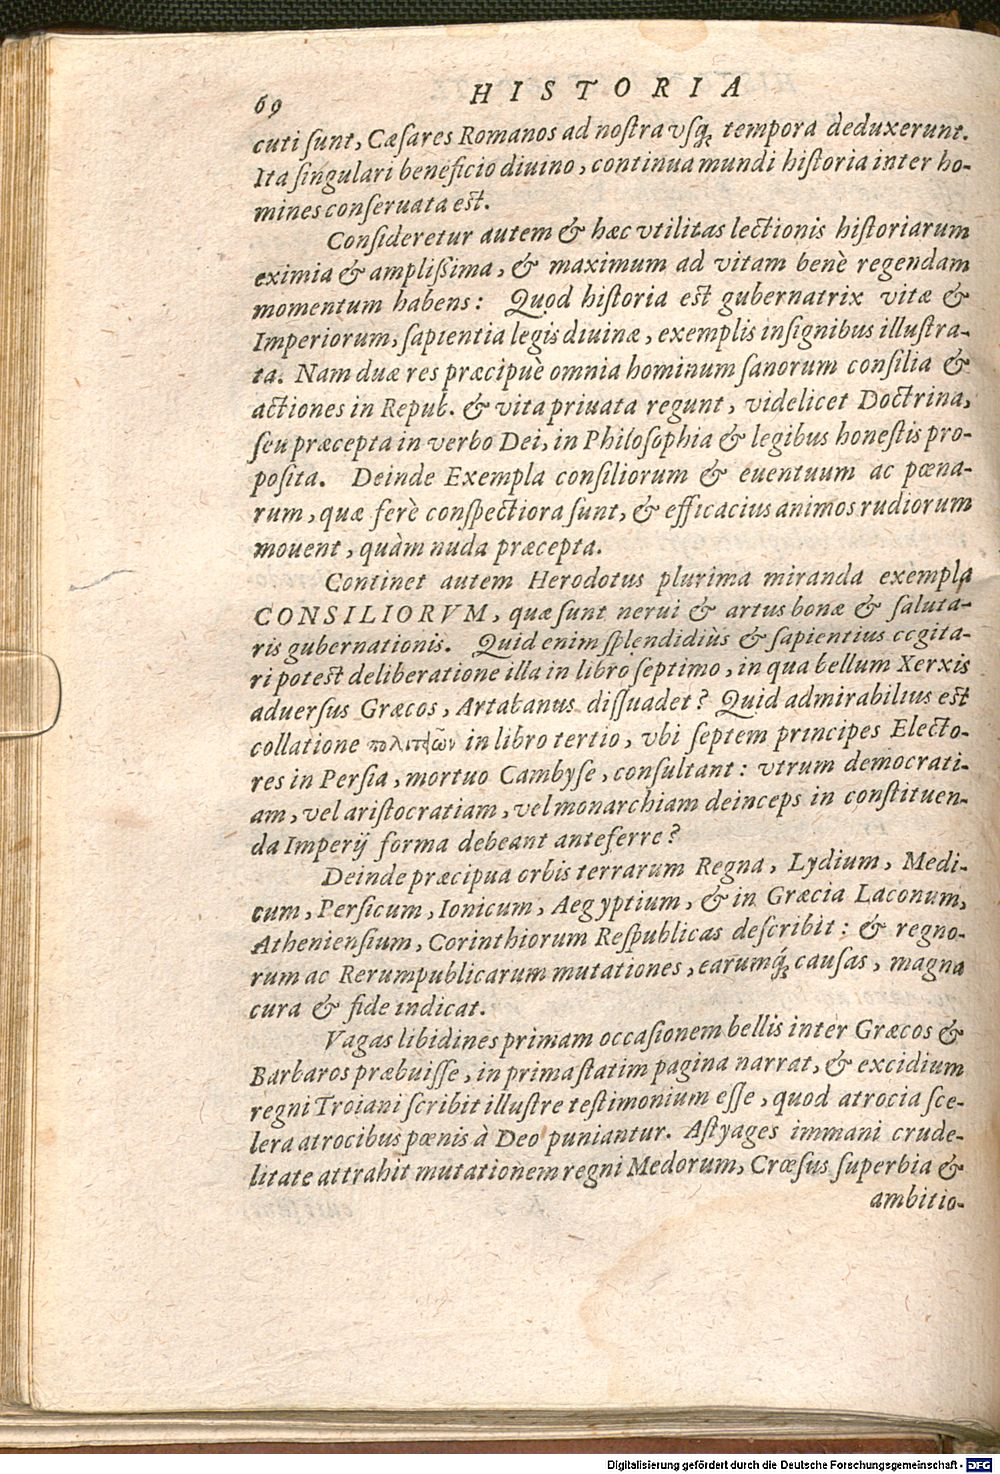 69 HISTORIA
cuti sunt, Cæsares Romanos ad nostra vsq́; tempora deduxerunt.
Ita singulari beneficio diuino, continua mundi historia inter ho-
mines conseruata est.
Consideretur autem & hæc vtilitas lectionis historiarum
eximia & amplissima, & maximum ad vitam benè regendam
momentum habens: Quod historia est gubernatrix vitæ &
Imperiorum, sapientia legis diuinæ, exemplis insignibus illustra-
ta. Nam duæ res præcipuè omnia hominum sanorum consilia &
actiones in Repub. & vita priuata regunt, videlicet Doctrina,
seu præcepta in verbo Dei, in Philosophia & legibus honestis pro-
posita. Deinde Exempla consiliorum & euentuum ac pœna-
rum, quæ ferè conspectiora sunt, & efficacius animos rudiorum
mouent, quàm nuda præcepta.
Continet autem Herodotus plurima miranda exempla
CONSILIORVM, quæ sunt nerui & artus bonæ & saluta-
ris gubernationis. Quid enim splendidiùs & sapientius cogita-
ri potest deliberatione illa in libro septimo, in qua bellum Xerxis
aduersus Græcos, Artabanus dissuadet? Quid admirabilius est
collatione πολιτειῶν in libro tertio, vbi septem principes Electo-
res in Persia, mortuo Cambyse, consultant: vtrum democrati-
am, vel aristocratiam, vel monarchiam deinceps in constituen-
da Imperij forma debeant anteferre?
Deinde præcipua orbis terrarum Regna, Lydium, Medi-
cum, Persicum, Ionicum, Aegyptium, & in Græcia Laconum,
Atheniensium, Corinthiorum Respublicas describit: & regno-
rum ac Rerumpublicarum mutationes, earumq́; causas, magna
cura & fide indicat.
Vagas libidines primam occasionem bellis inter Græcos &
Barbaros præbuisse, in prima statim pagina narrat, & excidium
regni Troiani scribit illustre testimonium esse, quod atrocia sce-
lera atrocibus pœnis à Deo puniantur. Astyages immani crude-
litate attrahit mutationem regni Medorum, Crœsus superbia &
ambitio-
Digitalisierung gefördert durch die Deutsche Forschungsgemeinschaft - DFG